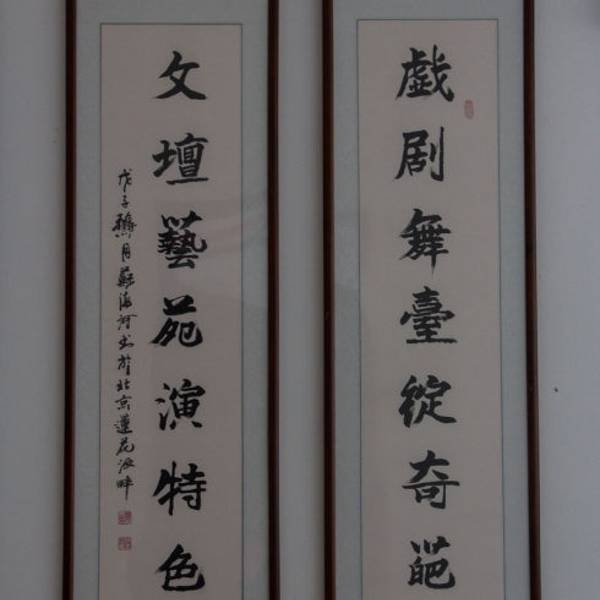 戲剧舞臺綻奇葩
文壇藝苑演特色
戊子龝月蘇海河书於北京蓮花池畔